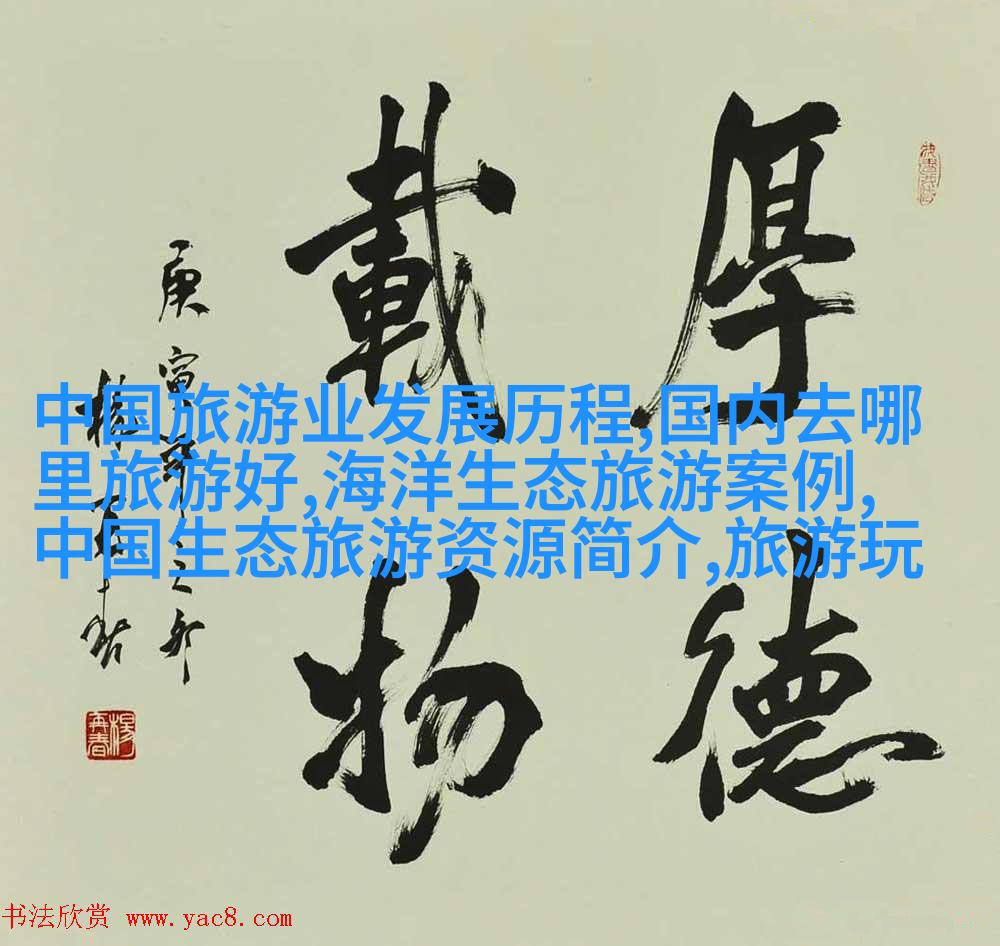 厚德
載物
庚寅
楊再春
中国旅游业发展历程,国内去哪
里旅游好,海洋生态旅游案例,
中国生态旅游资源简介,旅游玩
书法欣赏 www.yac8.com